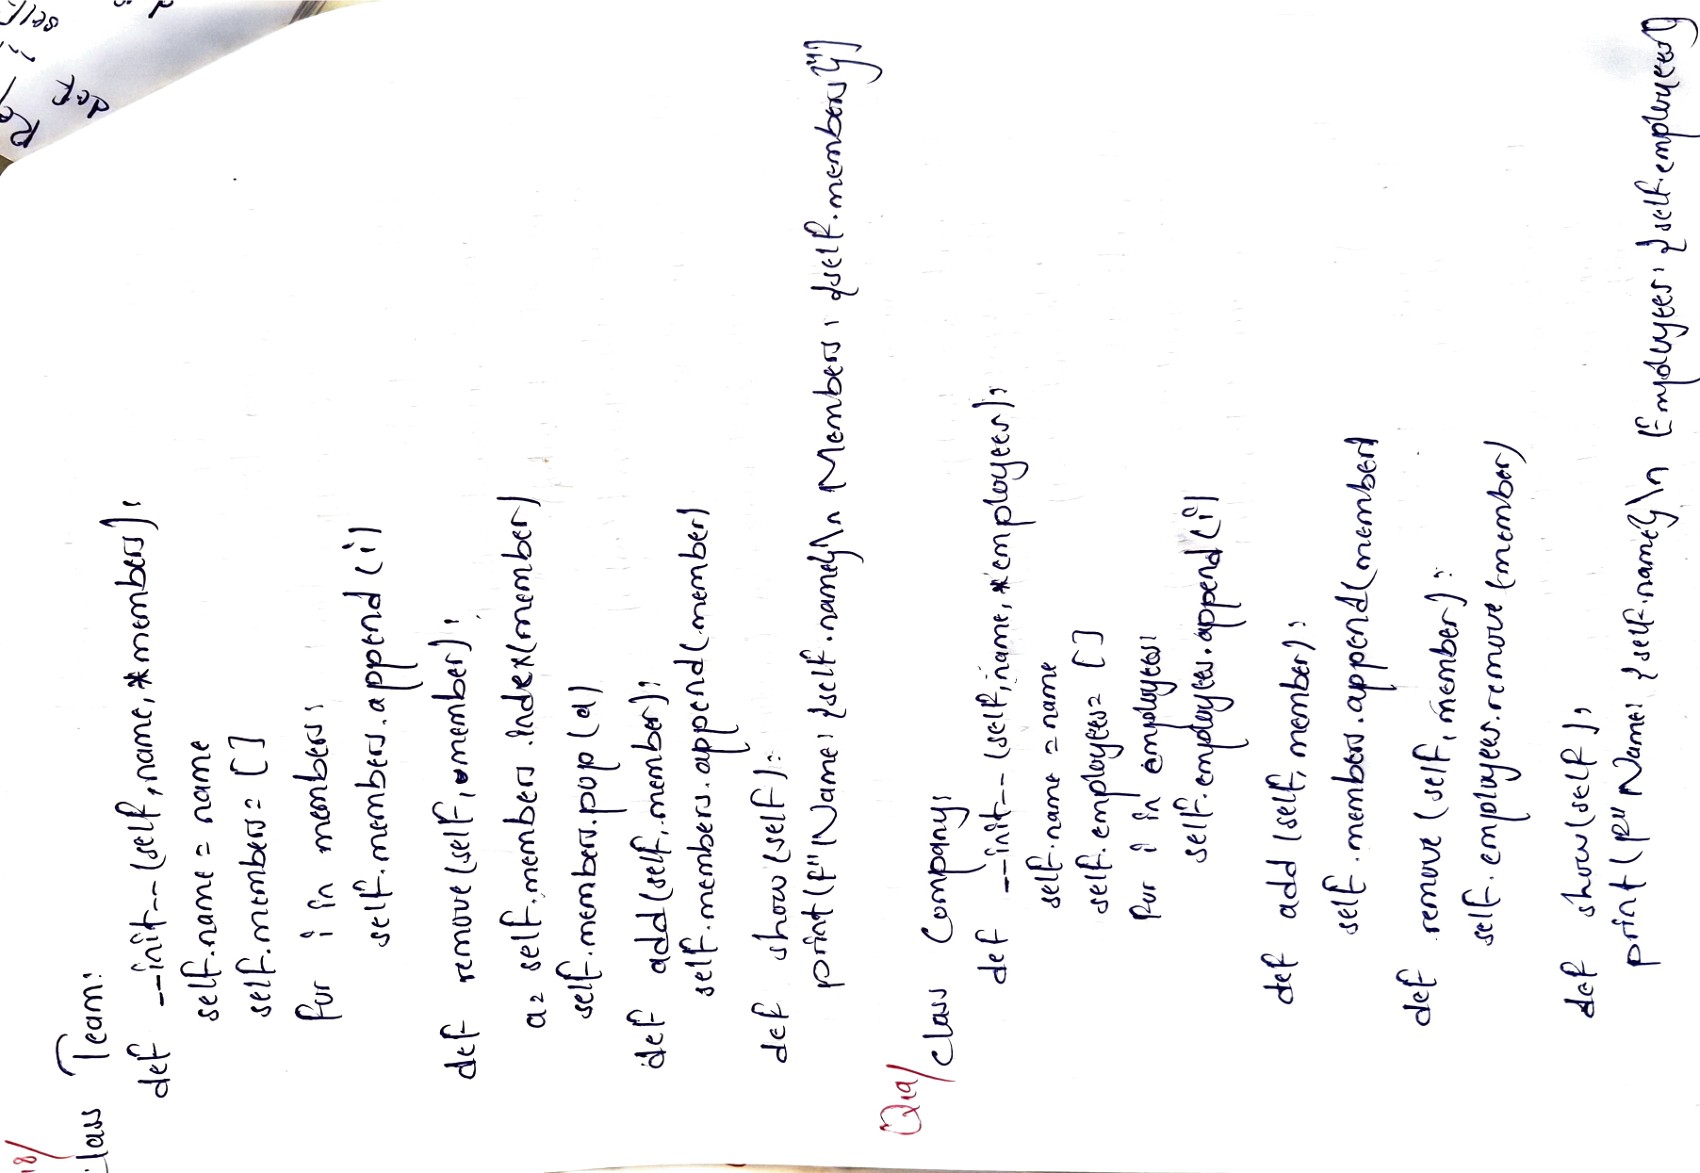 18/
class Team:
def __init__(self,name,*members):
self.name = name
self.members = []
for i in members:
self.members.append(i)
def remove(self,member):
a= self.members.index(member)
self.members.pop(a)
def add(self,member):
self.members.append(member)
def show(self):
print(f"Name: {self.name}\n Members: {self.members}")
Q19/
class Company:
def __init__(self,name,*employees):
self.name = name
self.employees= []
for i in employees:
self.employees.append(i)
def add(self,member):
self.members.append(member)
def remove(self,member):
self.employees.remove(member)
def show(self):
print(f"Name: {self.name}\n Employees: {self.employees}
def
self